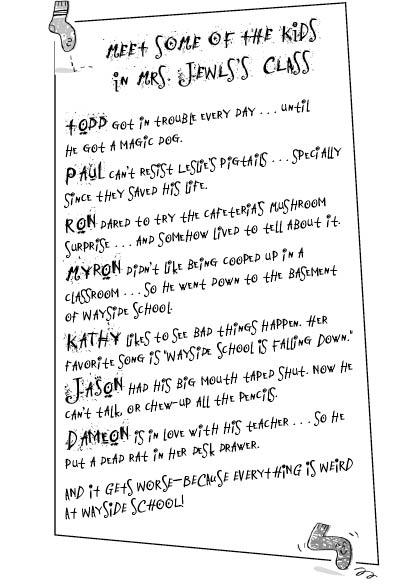 MEET SOME OF THE KIDS
IN MRS. JEWLS'S CLASS
TODD GOT IN TROUBLE EVERY DAY . . . UNTIL
HE GOT A MAGIC DOG.
PAUL CAN'T RESIST LESLIE'S PIGTAILS . . . SPECIALLY
SINCE THEY SAVED HIS LIFE.
RON DARED TO TRY THE CAFETERIA'S MUSHROOM
SURPRISE . . . AND SOMEHOW LIVED TO TELL ABOUT IT.
MYRON DIDN'T LIKE BEING COOPED UP IN A
CLASSROOM . . . SO HE WENT DOWN TO THE BASEMENT
OF WAYSIDE SCHOOL.
KATHY LIKES TO SEE BAD THINGS HAPPEN. HER
FAVORITE SONG IS "WAYSIDE SCHOOL IS FALLING DOWN."
JASON HAD HIS BIG MOUTH TAPED SHUT. NOW HE
CAN'T TALK, OR CHEW-UP ALL THE PENCILS.
DAMEON IS IN LOVE WITH HIS TEACHER . . . SO HE
PUT A DEAD RAT IN HER DESK DRAWER.
AND IT GETS WORSE—BECAUSE EVERYTHING IS WEIRD
AT WAYSIDE SCHOOL!